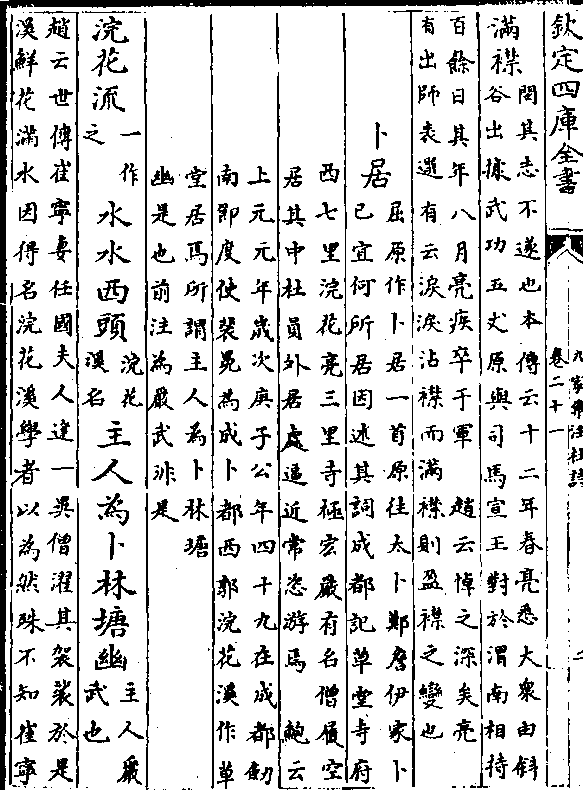 欽定四庫全書
九家集注杜詩
卷二十一
滿襟閔其志不遂也本傳云十二年春亮悉大衆由斜
谷出據武功五丈原與司馬宣王對於渭南相持
百餘日其年八月亮疾卒于軍 趙云悼之深矣亮
有出師表選有云淚淚沾襟而滿襟則盈襟之變也
卜居屈原作卜居一首原往太卜鄭詹伊家卜
己宜何所居因述其詞成都記草堂寺府
西七里浣花亮三里寺極宏嚴有名僧履空
居其中杜員外居處逼近常恣游焉 鮑云
上元元年歲次庚子公年四十九在成都劍
南節度使裴冕為成卜都西郭浣花溪作草
堂居焉所謂主人為卜林塘
幽是也前注為嚴武非是
浣花流一作之水水西頭浣花溪名主人為卜林塘幽主人嚴武也
趙云世傳崔寧妻任國夫人逢一吳僧濯其袈裟於是
溪鮮花滿水因得名浣花溪學者以為然殊不知崔寧